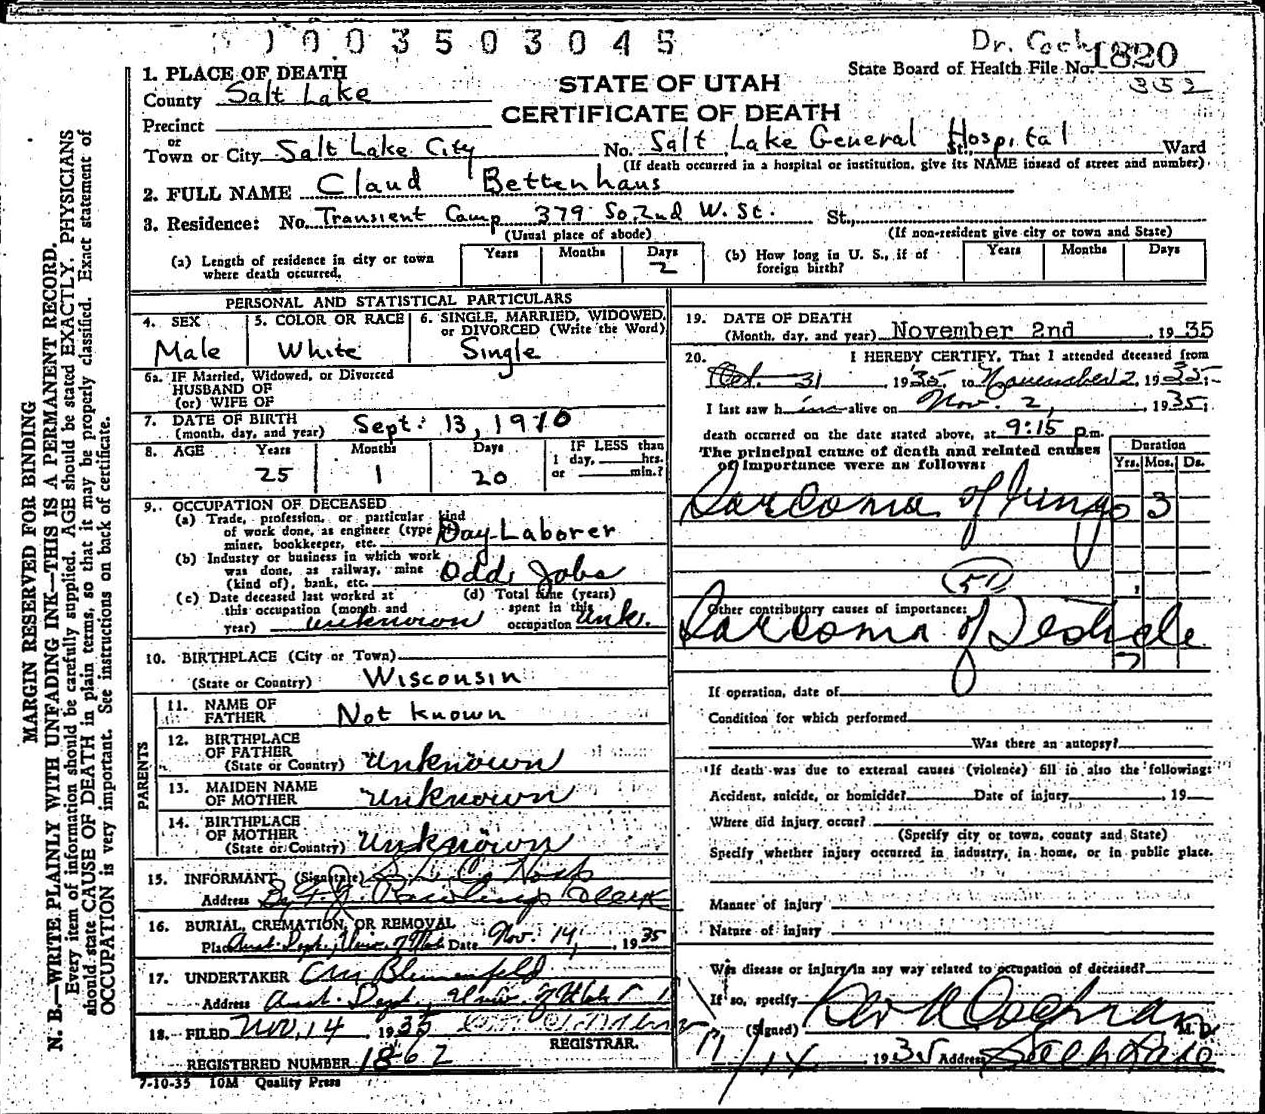 1003503045
Dr. Coch
1820
State Board of Health File No.
352
1. PLACE OF DEATH
STATE OF UTAH
County Salt Lake
CERTIFICATE OF DEATH
Precinct
or
Town or City Salt Lake City No. Salt Lake General Hospital St., Ward
(If death occurred in a hospital or institution, give its NAME insead of street and number)
2. FULL NAME Claud Bettenhaus
3. Residence: No. Transient Camp 379 So. 2nd W. St. St.,
(Usual place of abode) (If non-resident give city or town and State)
(a) Length of residence in city or town where death occurred. Years Months Days 2
(b) How long in U. S., if of foreign birth? Years Months Days
PERSONAL AND STATISTICAL PARTICULARS
4. SEX Male
5. COLOR OR RACE White
6. SINGLE, MARRIED, WIDOWED, or DIVORCED (Write the Word) Single
6a. IF Married, Widowed, or Divorced
HUSBAND OF
(or) WIFE OF
7. DATE OF BIRTH
(month, day, and year) Sept. 13, 1910
8. AGE Years 25 Months 1 Days 20
IF LESS than
1 day, hrs.
or min.?
9. OCCUPATION OF DECEASED
(a) Trade, profession, or particular kind
of work done, as engineer (type
miner, bookkeeper, etc. Day Laborer
(b) Industry or business in which work
was done, as railway, mine
(kind of), bank, etc. Odd Jobs
(c) Date deceased last worked at
this occupation (month and
year) unknown
(d) Total time (years)
spent in this
occupation Unk.
10. BIRTHPLACE (City or Town)
(State or Country) Wisconsin
PARENTS
11. NAME OF FATHER Not known
12. BIRTHPLACE OF FATHER
(State or Country) Unknown
13. MAIDEN NAME OF MOTHER Unknown
14. BIRTHPLACE OF MOTHER
(State or Country) Unknown
15. INFORMANT (Signature) S. L. C. Hosp
Address By Rawlings Clerk
16. BURIAL, CREMATION, OR REMOVAL
Place Anat. Dept., Univ. of Utah Date Nov. 14, 1935
17. UNDERTAKER Blumenfeld
Address Anat. Dept., Univ. of Utah
18. FILED Nov. 14 1935
REGISTRAR.
REGISTERED NUMBER 1862
7-10-35 10M Quality Press
19. DATE OF DEATH
(Month, day, and year) November 2nd 1935
20. I HEREBY CERTIFY, That I attended deceased from
Oct. 31, 1935, to November 2, 1935,
I last saw him alive on Nov. 2, 1935,
death occurred on the date stated above, at 9:15 p.m.
The principal cause of death and related causes
of importance were as follows:
Duration
Yrs. Mos. Ds.
Sarcoma of Lung 0 3
51
Other contributory causes of importance:
Sarcoma of Testicle
?
If operation, date of
Condition for which performed
Was there an autopsy?
If death was due to external causes (violence) fill in also the following:
Accident, suicide, or homicide? Date of injury 19
Where did injury occur?
(Specify city or town, county and State)
Specify whether injury occurred in industry, in home, or in public place.
Manner of injury
Nature of injury
Was disease or injury in any way related to occupation of deceased?
If so, specify
(Signed) Cochran M. D.
11/14 1935 Address Salt Lake
MARGIN RESERVED FOR BINDING
N. B.—WRITE PLAINLY WITH UNFADING INK—THIS IS A PERMANENT RECORD.
Every item of information should be carefully supplied. AGE should be stated EXACTLY. PHYSICIANS
should state CAUSE OF DEATH in plain terms, so that it may be properly classified. Exact statement of
OCCUPATION is very important. See instructions on back of certificate.